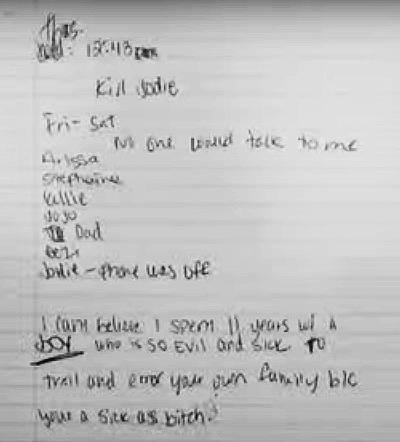 Thurs.
12:43
Kill Jodie
Fri- Sat
No one would talk to me
Arissa
Stephanie
Kellie
JoJo
Dad
Jodie - phone was off
I cant believe I spent 11 years w/ a
boy who is so evil and sick to
trail and error your own family b/c
your a sick as bitch!